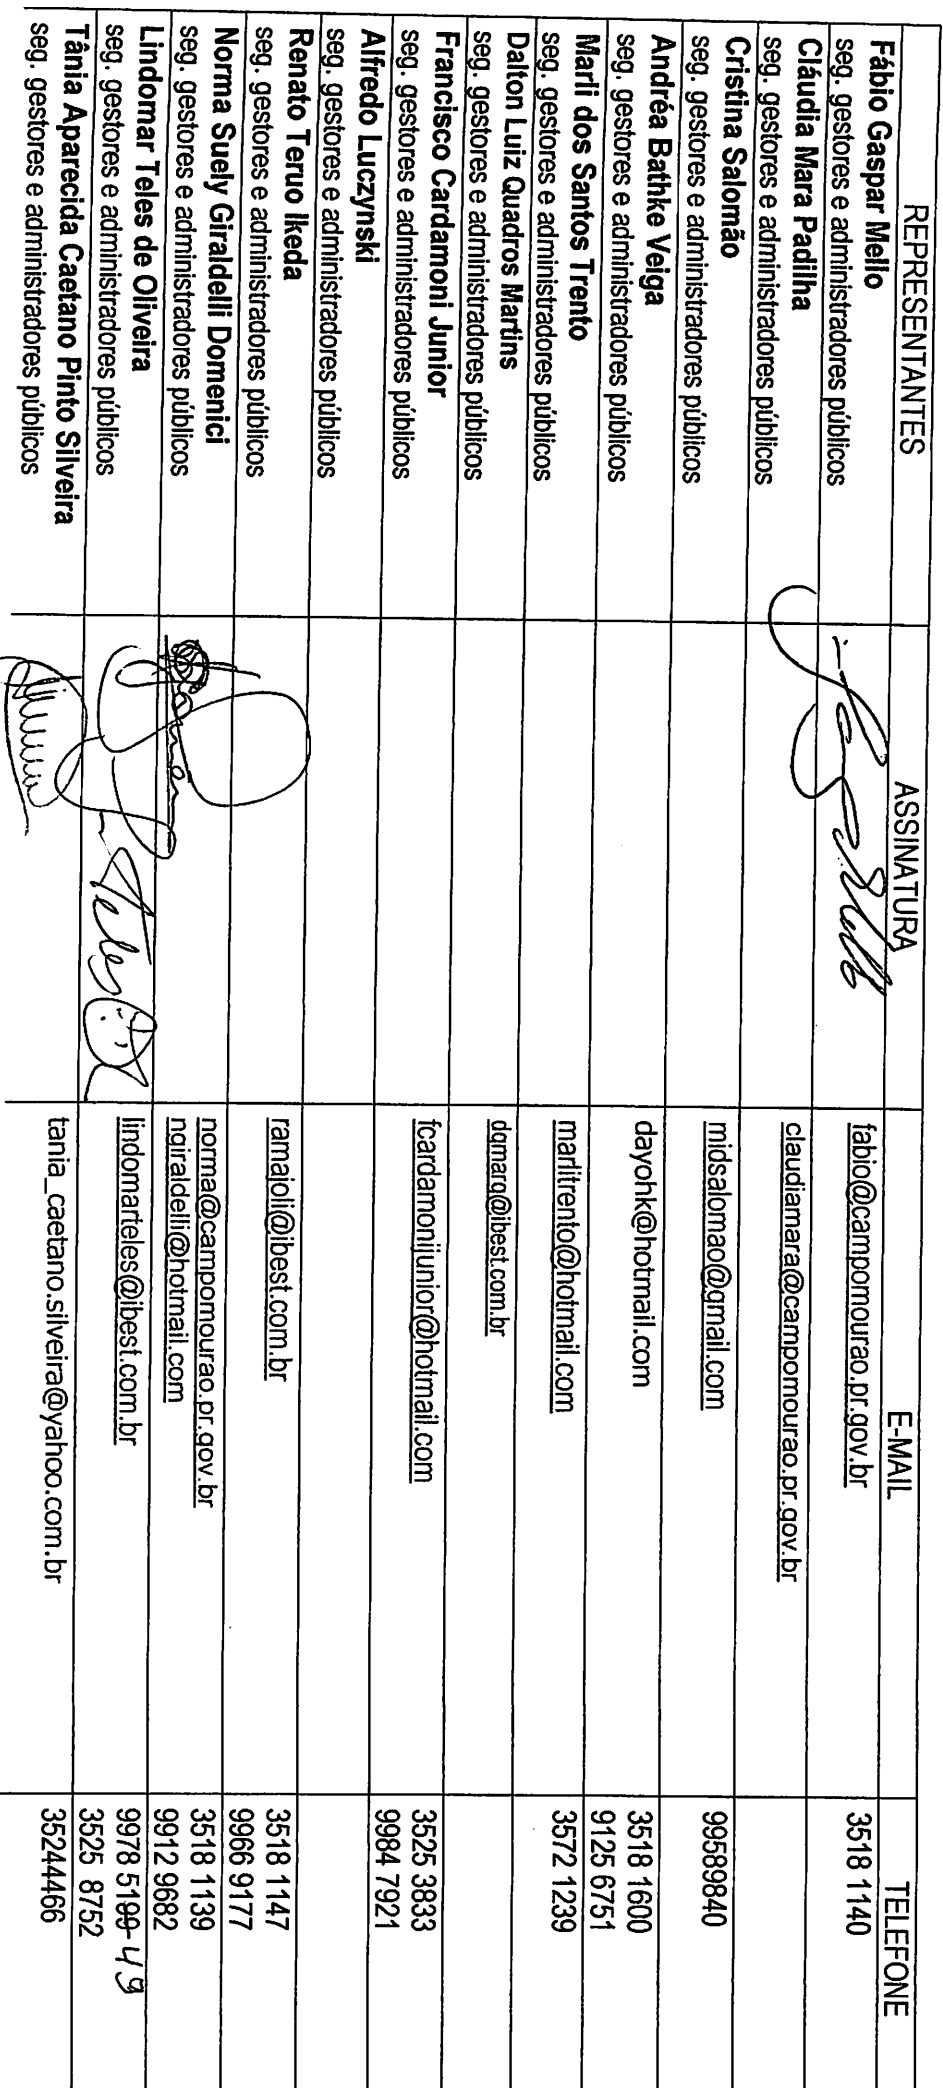 REPRESENTANTES ASSINATURA E-MAIL TELEFONE
Fábio Gaspar Mello
seg. gestores e administradores públicos
fabio@campomourao.pr.gov.br
3518 1140
Cláudia Mara Padilha
seg. gestores e administradores públicos
claudiamara@campomourao.pr.gov.br
Cristina Salomão
seg. gestores e administradores públicos
midsalomao@gmail.com
99589840
Andréa Bathke Veiga
seg. gestores e administradores públicos
dayohk@hotmail.com
3518 1600
9125 6751
Marli dos Santos Trento
seg. gestores e administradores públicos
marlitrento@hotmail.com
3572 1239
Dalton Luiz Quadros Martins
seg. gestores e administradores públicos
dqmarq@ibest.com.br
Francisco Cardamoni Junior
seg. gestores e administradores públicos
fcardamonijunior@hotmail.com
3525 3833
9984 7921
Alfredo Luczynski
seg. gestores e administradores públicos
Renato Teruo Ikeda
seg. gestores e administradores públicos
ramajoli@ibest.com.br
3518 1147
9966 9177
Norma Suely Giraldelli Domenici
seg. gestores e administradores públicos
norma@campomourao.pr.gov.br
ngiraldelli@hotmail.com
3518 1139
9912 9682
Lindomar Teles de Oliveira
seg. gestores e administradores públicos
Teles
lindomarteles@ibest.com.br
9978 5199-49
3525 8752
Tânia Aparecida Caetano Pinto Silveira
seg. gestores e administradores públicos
tania_caetano.silveira@yahoo.com.br
35244466